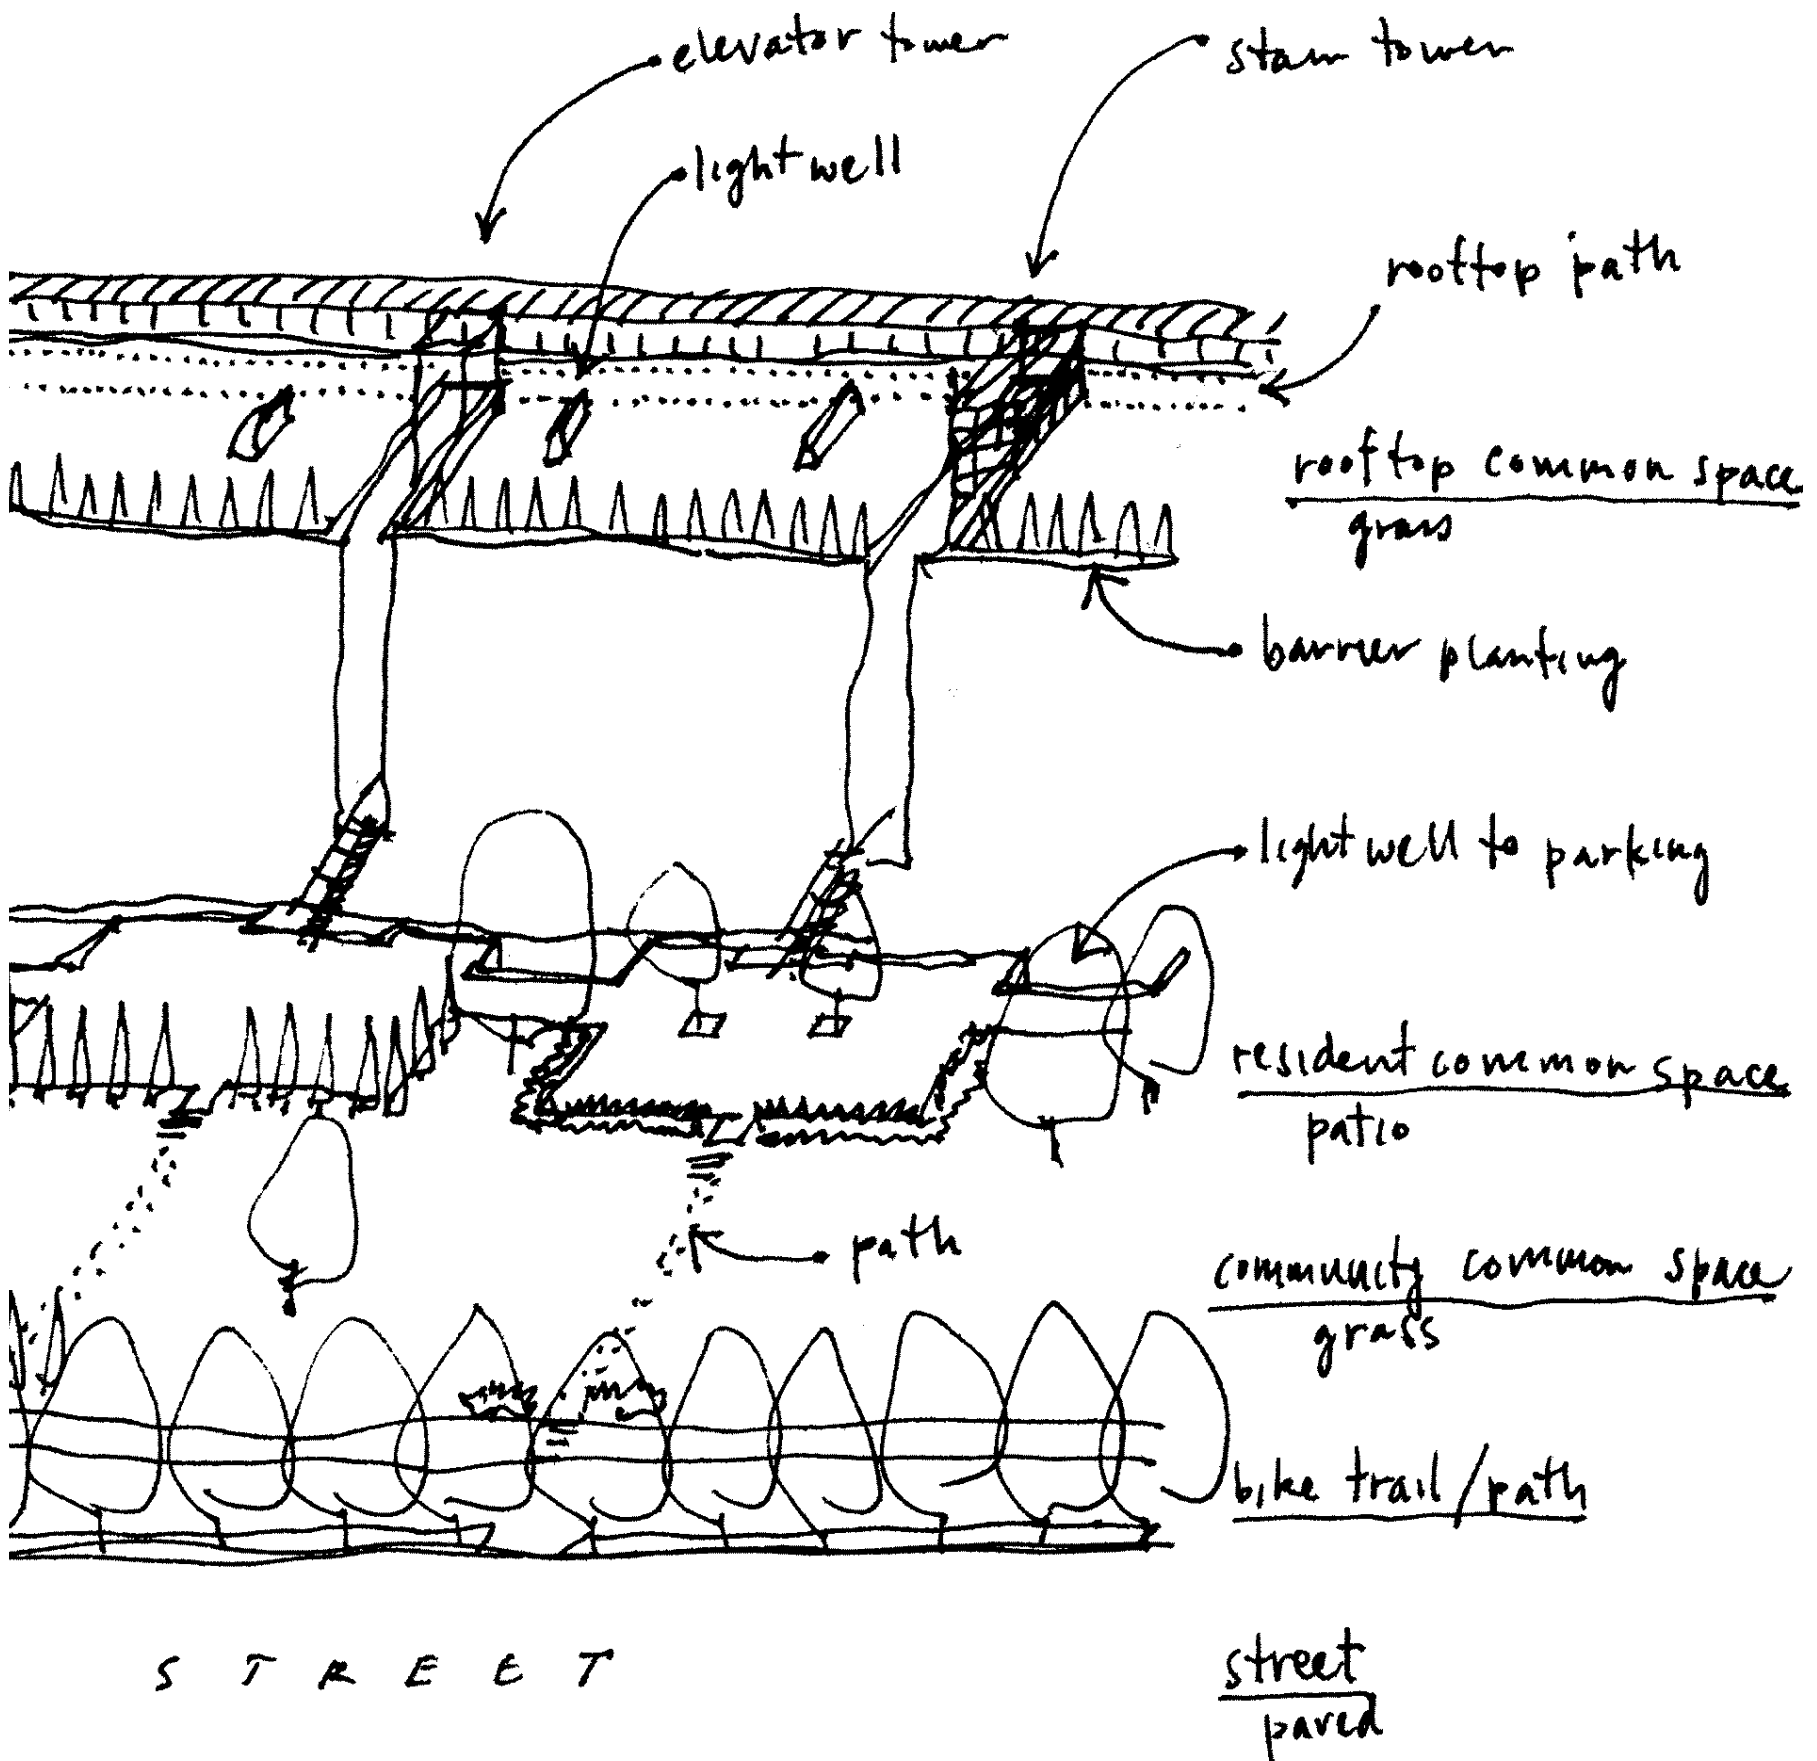 elevator tower
stair tower
light well
rooftop path
rooftop common space
grass
barrier planting
light well to parking
resident common space
patio
path
community common space
grass
bike trail/path
STREET
street
paved